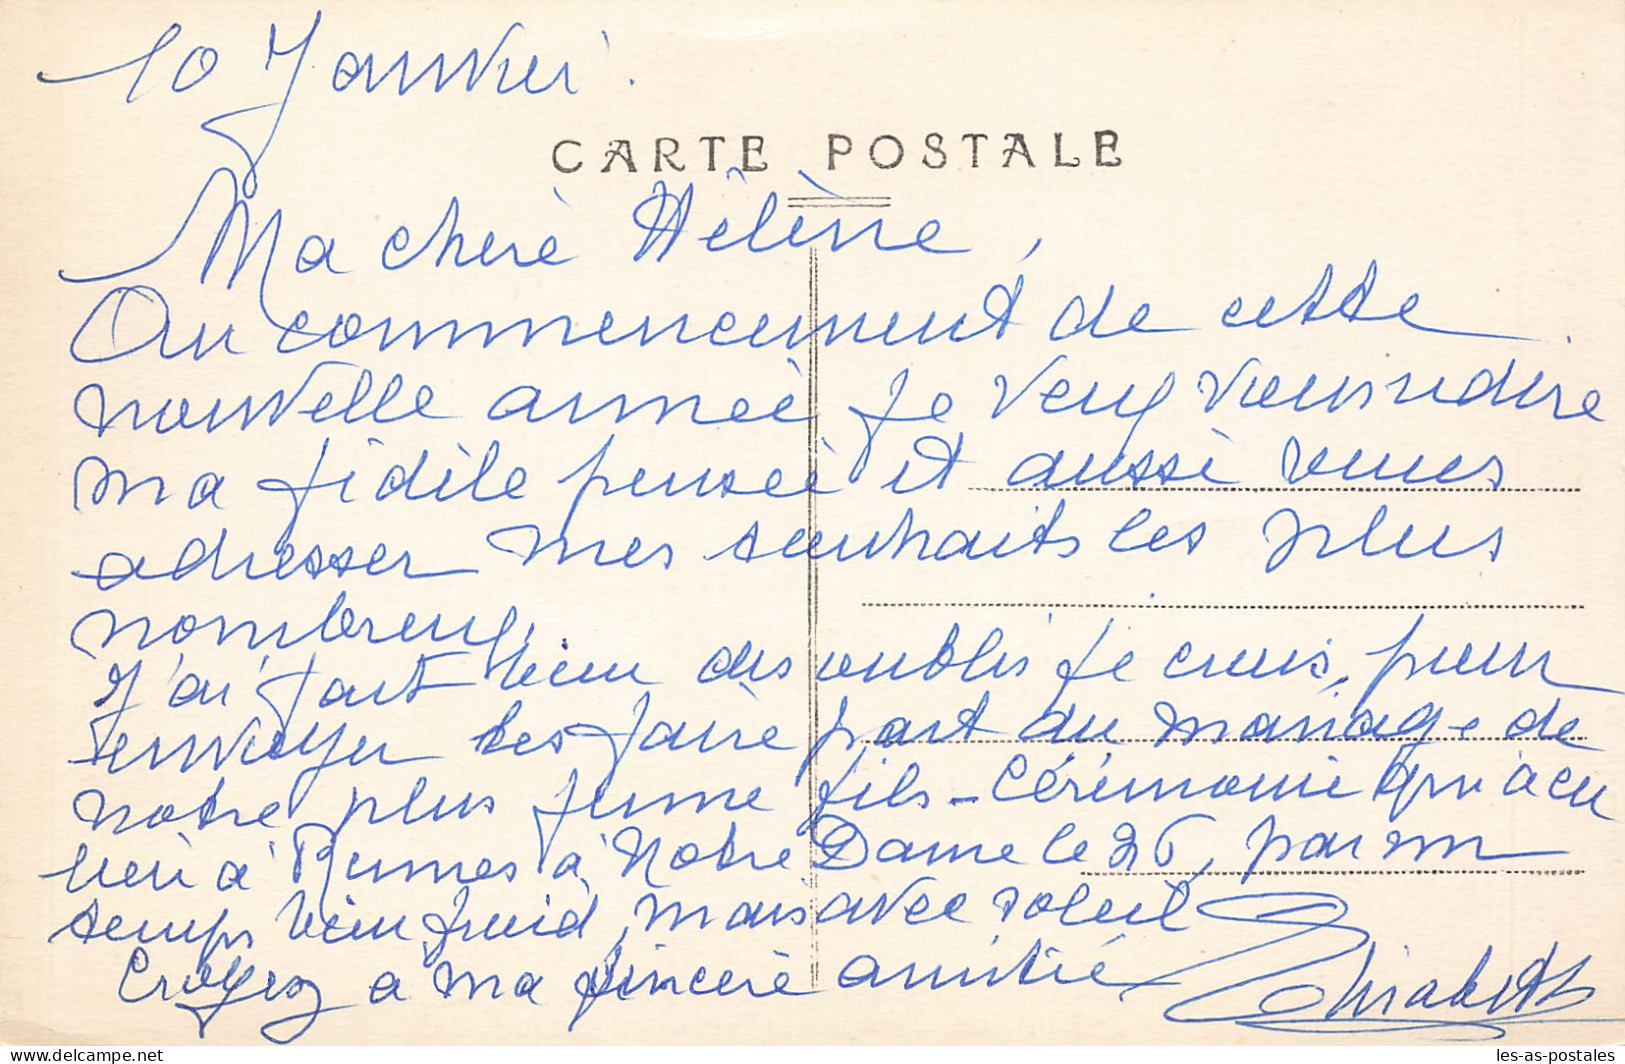 10 Janvier.
CARTE POSTALE
Ma chère Hélène,
Au commencement de cette
nouvelle année je veux vous redire
ma fidèle pensée et aussi vous
adresser mes souhaits les plus
nombreux,
J'ai fait bien des oublis je crois, pour
envoyer les faire part du mariage de
notre plus jeune fils - Cérémonie qui a eu
lieu à Rennes à Notre Dame le 26, par un
temps bien froid, mais avec soleil
Croyez à ma sincère amitié
Elisabeth
les-as-postales
Delcampe.net